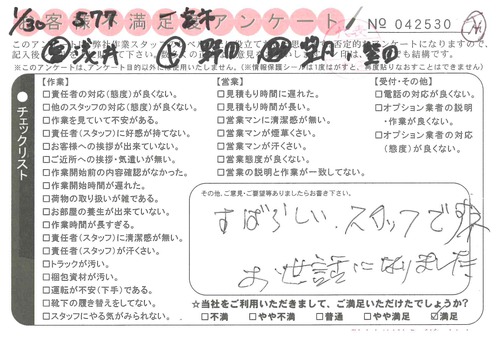 1/30 577
お客様不満足度アンケート
№ 042530
【作業】
□責任者の対応(態度)が良くない。
□他のスタッフの対応(態度)が良くない。
□作業を見ていて不安がある。
□責任者(スタッフ)に好感が持てない。
□お客様への挨拶が出来ていない。
□ご近所への挨拶・気遣いが無い。
□作業開始前の内容確認がなかった。
□作業開始時間が遅れた。
□荷物の取り扱いが雑である。
□お部屋の養生が出来ていない。
□作業時間が長すぎる。
□責任者(スタッフ)に清潔感が無い。
□責任者(スタッフ)が汗くさい。
□トラックが汚い。
□梱包資材が汚い。
□運転が不安(下手)である。
□靴下の履き替えをしてない。
□スタッフにやる気がみられない。
【営業】
□見積もり時間に遅れた。
□見積もり時間が長い。
□営業マンに清潔感が無い。
□営業マンが煙草くさい。
□営業マンが汗くさい。
□営業態度が良くない。
□営業の説明と作業が一致してない。
【受付・その他】
□電話の対応が良くない。
□オプション業者の説明
・作業が良くない。
□オプション業者の対応
(態度)が良くない。
チェックリスト
その他、ご意見・ご要望等ありましたらお書き下さい。
すばらしい、スタッフです
お世話になりました
☆当社をご利用いただきまして、ご満足いただけたでしょうか?
□不満 □やや不満 □普通 □やや満足 ☑満足